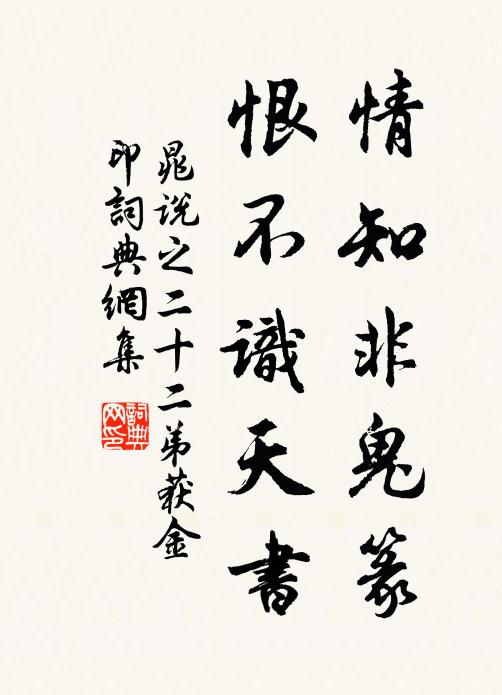 情知非鬼篆
恨不識天書
晁説之二十二弟获金
印詞典網集
詞典网印